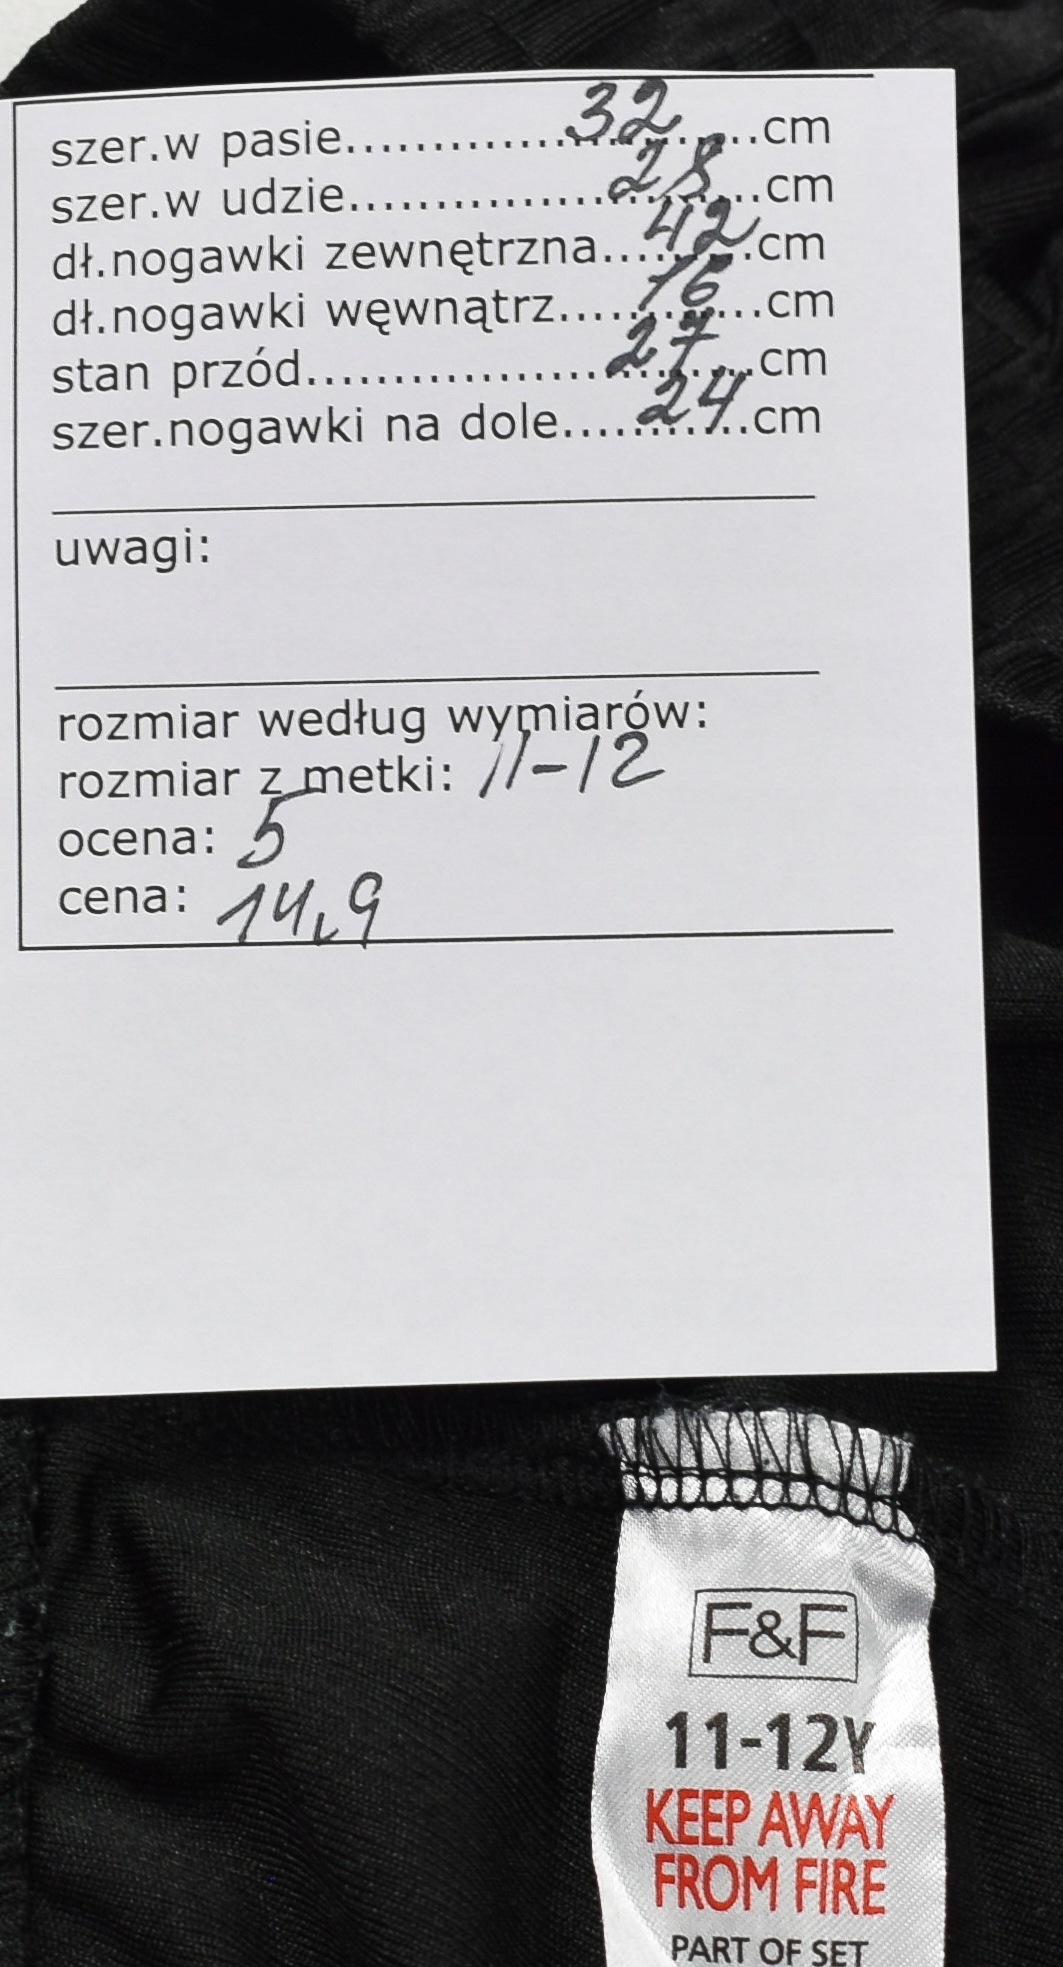 szer.w pasie......................32.......cm
szer.w udzie......................28.......cm
dł.nogawki zewnętrzna.....42.....cm
dł.nogawki węwnątrz.......16.......cm
stan przód......................27.......cm
szer.nogawki na dole.......24.....cm
uwagi:
rozmiar według wymiarów:
rozmiar z metki: 11-12
ocena: 5
cena: 14,9
F&F
11-12Y
KEEP AWAY
FROM FIRE
PART OF SET